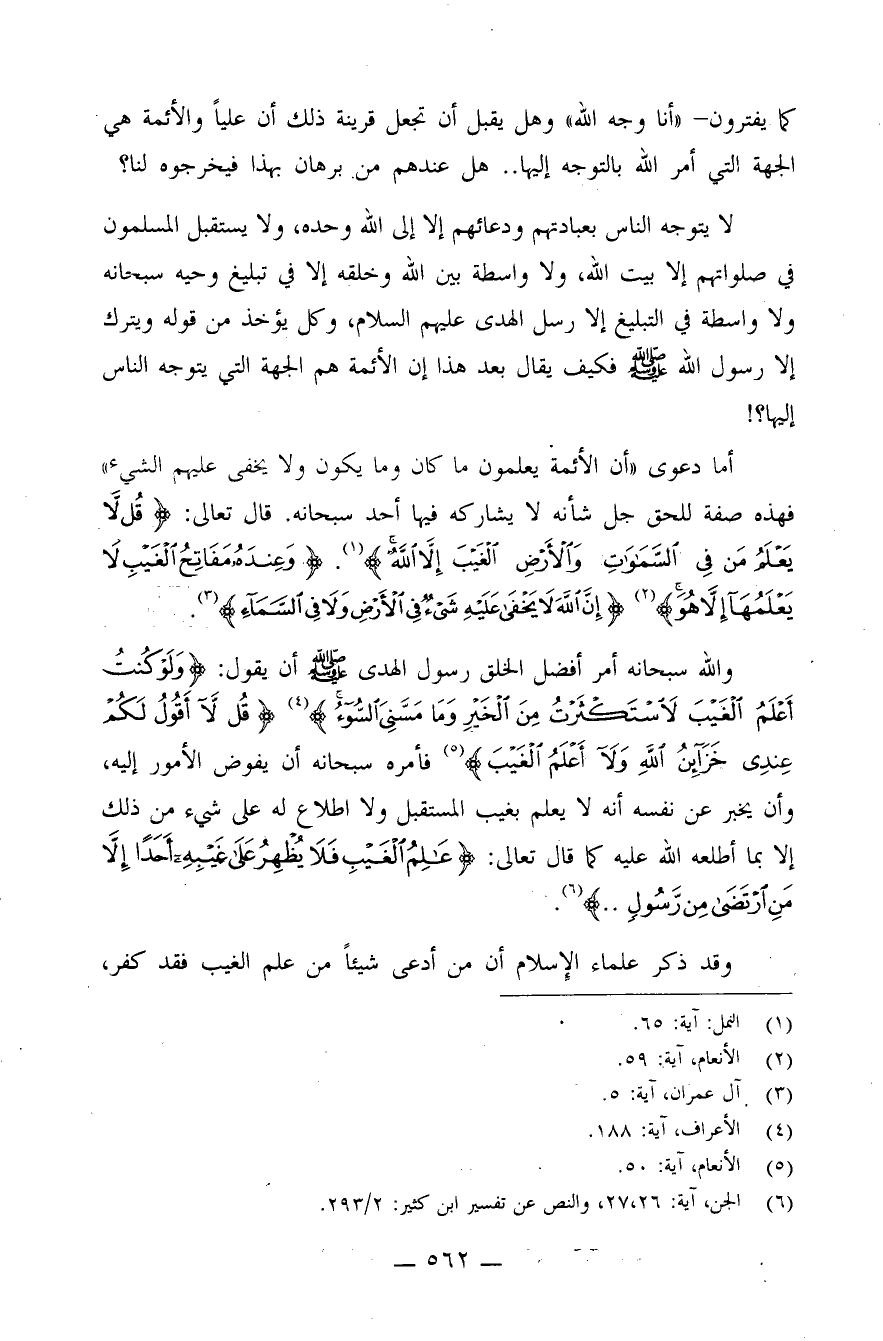 كما يفترون– «أنا وجه الله» وهل يقبل أن تجعل قرينة ذلك أن علياً والأئمة هي
الجهة التي أمر الله بالتوجه إليها.. هل عندهم من برهان بهذا فيخرجوه لنا؟
لا يتوجه الناس بعبادتهم ودعائهم إلا إلى الله وحده، ولا يستقبل المسلمون
في صلواتهم إلا بيت الله، ولا واسطة بين الله وخلقه إلا في تبليغ وحيه سبحانه
ولا واسطة في التبليغ إلا رسل الهدى عليهم السلام، وكل يؤخذ من قوله ويترك
إلا رسول الله ﷺ فكيف يقال بعد هذا إن الأئمة هم الجهة التي يتوجه الناس
إليها؟!
أما دعوى «أن الأئمة يعلمون ما كان وما يكون ولا يخفى عليهم الشيء»
فهذه صفة للحق جل شأنه لا يشاركه فيها أحد سبحانه. قال تعالى: ﴿ قُل لَّا
يَعْلَمُ مَن فِي ٱلسَّمَٰوَٰتِ وَٱلْأَرْضِ ٱلْغَيْبَ إِلَّا ٱللَّهُ ﴾(١). ﴿ وَعِندَهُۥ مَفَاتِحُ ٱلْغَيْبِ لَا
يَعْلَمُهَآ إِلَّا هُوَ ﴾(٢) ﴿ إِنَّ ٱللَّهَ لَا يَخْفَىٰ عَلَيْهِ شَيْءٌ فِي ٱلْأَرْضِ وَلَا فِي ٱلسَّمَآءِ ﴾(٣).
والله سبحانه أمر أفضل الخلق رسول الهدى ﷺ أن يقول: ﴿ وَلَوْ كُنتُ
أَعْلَمُ ٱلْغَيْبَ لَٱسْتَكْثَرْتُ مِنَ ٱلْخَيْرِ وَمَا مَسَّنِيَ ٱلسُّوٓءُ ﴾(٤) ﴿ قُل لَّآ أَقُولُ لَكُمْ
عِندِي خَزَآئِنُ ٱللَّهِ وَلَآ أَعْلَمُ ٱلْغَيْبَ ﴾(٥) فأمره سبحانه أن يفوض الأمور إليه،
وأن يخبر عن نفسه أنه لا يعلم بغيب المستقبل ولا اطلاع له على شيء من ذلك
إلا بما أطلعه الله عليه كما قال تعالى: ﴿ عَٰلِمُ ٱلْغَيْبِ فَلَا يُظْهِرُ عَلَىٰ غَيْبِهِۦٓ أَحَدًا إِلَّا
مَنِ ٱرْتَضَىٰ مِن رَّسُولٍ ..﴾(٦).
وقد ذكر علماء الإسلام أن من أدعى شيئاً من علم الغيب فقد كفر،
(١) النمل: آية: ٦٥.
(٢) الأنعام، آية: ٥٩.
(٣) آل عمران، آية: ٥.
(٤) الأعراف، آية: ١٨٨.
(٥) الأنعام، آية: ٥٠.
(٦) الجن، آية: ٢٧،٢٦، والنص عن تفسير ابن كثير: ٢٩٣/٢.
— ٥٦٢ —